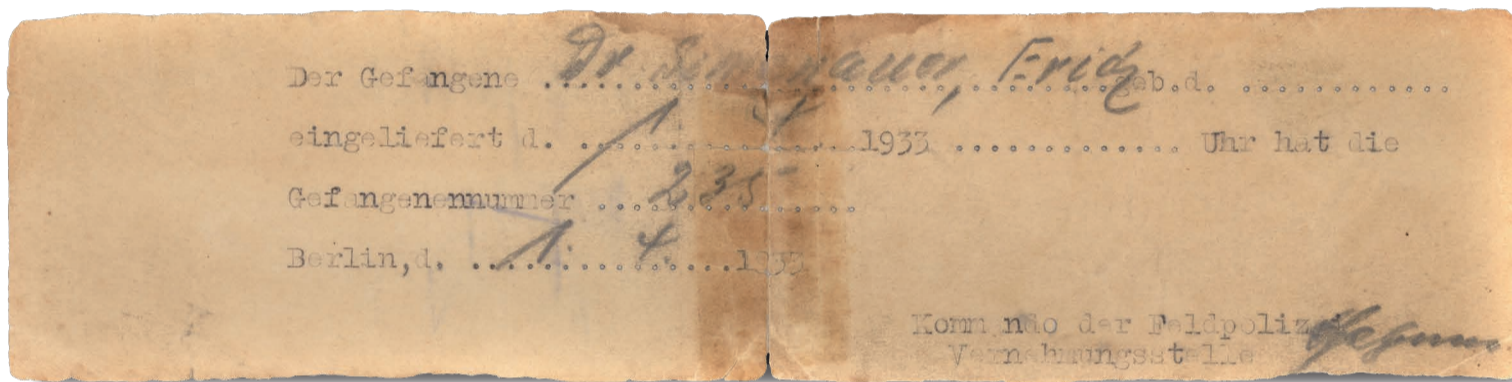 Der Gefangene Dr. Simonauer, Erich geb.d. ............
eingeliefert d. 1. 4. 1933 ............. Uhr hat die
Gefangenennummer 235
Berlin,d. 1. 4. 1933
Kommando der Feldpolizei
Vernehmungsstelle